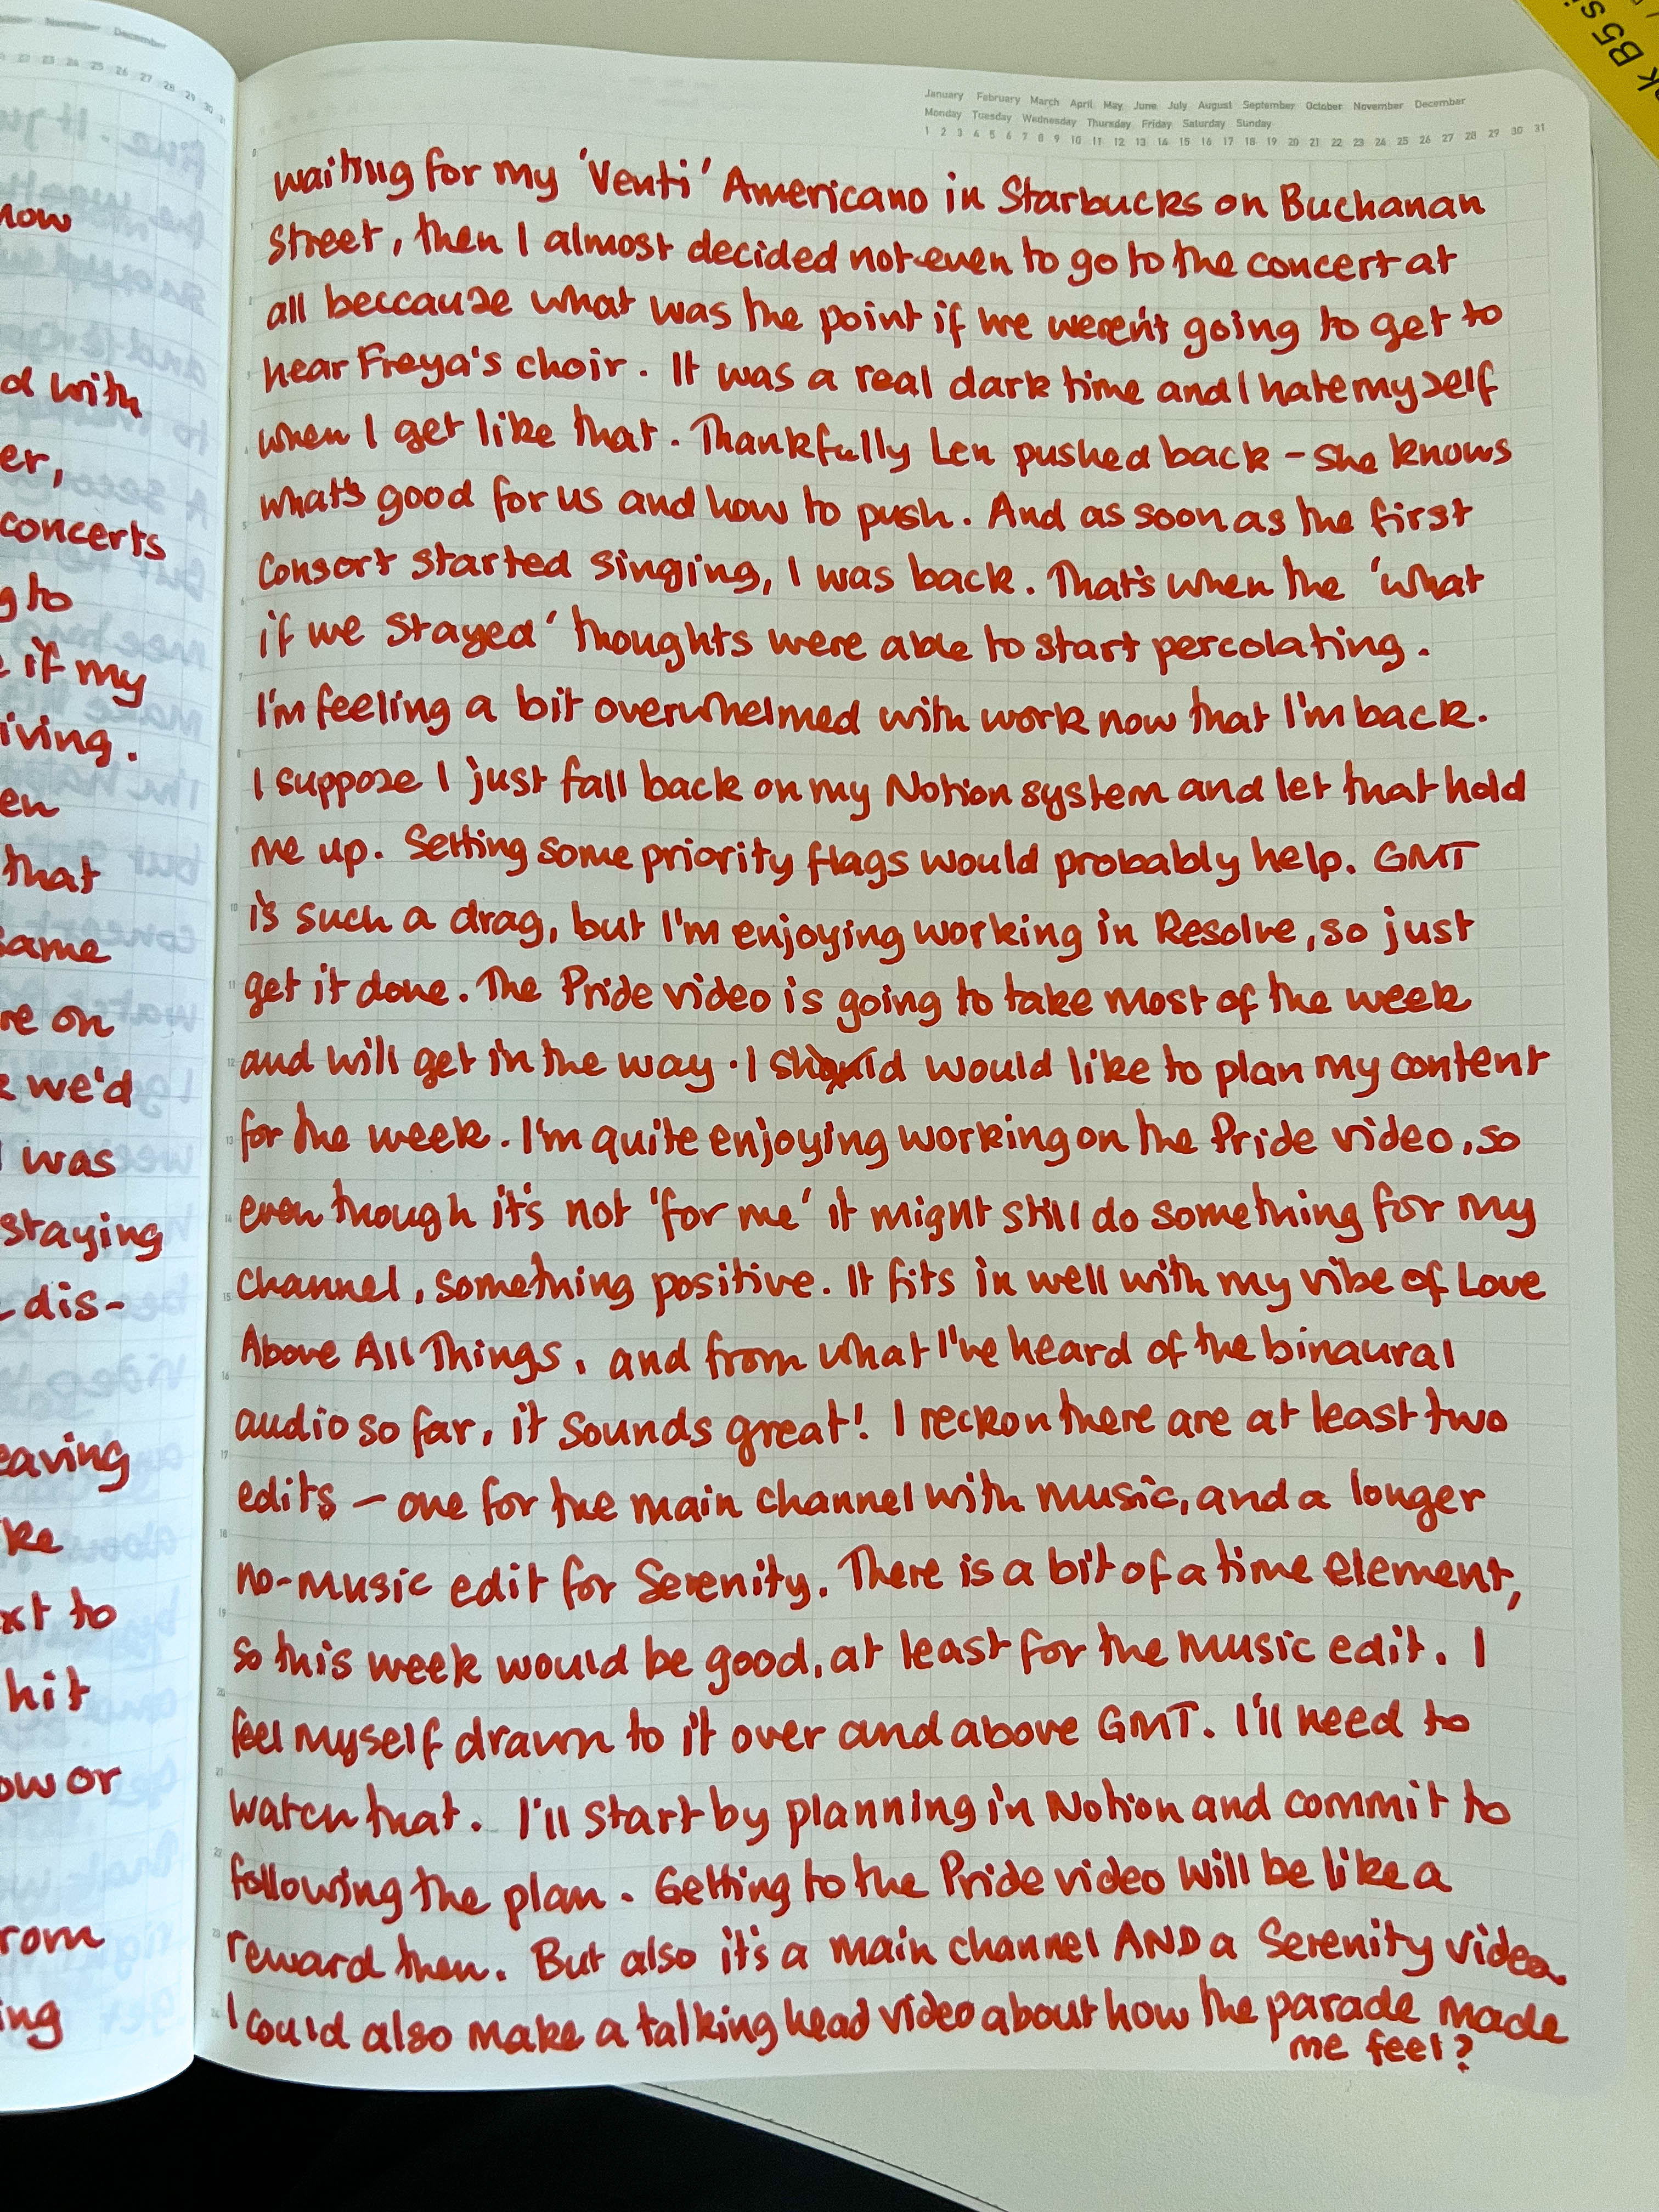 November December
22 23 24 25 26 27 28 29 30 31
now
d with
er,
concerts
g to
if my
iving.
en
that
same
re on
we'd
was
staying
dis-
eaving
ke
xt to
hit
ow or
rom
ing
January February March April May June July August September October November December
Monday Tuesday Wednesday Thursday Friday Saturday Sunday
1 2 3 4 5 6 7 8 9 10 11 12 13 14 15 16 17 18 19 20 21 22 23 24 25 26 27 28 29 30 31
waiting for my 'Venti' Americano in Starbucks on Buchanan
Street, then I almost decided not even to go to the concert at
all beccause what was the point if we weren't going to get to
hear Freya's choir. It was a real dark time and I hate myself
when I get like that. Thankfully Len pushed back – she knows
what's good for us and how to push. And as soon as the first
Consort started singing, I was back. That's when the 'what
if we stayed' thoughts were able to start percolating.
I'm feeling a bit overwhelmed with work now that I'm back.
I suppose I just fall back on my Notion system and let that hold
me up. Setting some priority flags would probably help. GMT
is such a drag, but I'm enjoying working in Resolve, so just
get it done. The Pride video is going to take most of the week
and will get in the way. I should would like to plan my content
for the week. I'm quite enjoying working on the Pride video, so
even though it's not 'for me' it might still do something for my
channel, something positive. It fits in well with my vibe of Love
Above All Things, and from what I've heard of the binaural
audio so far, it sounds great! I reckon there are at least two
edits – one for the main channel with music, and a longer
no-music edit for Serenity. There is a bit of a time element,
so this week would be good, at least for the music edit. I
feel myself drawn to it over and above GMT. I'll need to
watch that. I'll start by planning in Notion and commit to
following the plan. Getting to the Pride video will be like a
reward then. But also it's a main channel AND a Serenity video
I could also make a talking head video about how the parade made
me feel?
B5
0
1
2
3
4
5
6
7
8
9
10
11
12
13
14
15
16
17
18
19
20
21
22
23
24